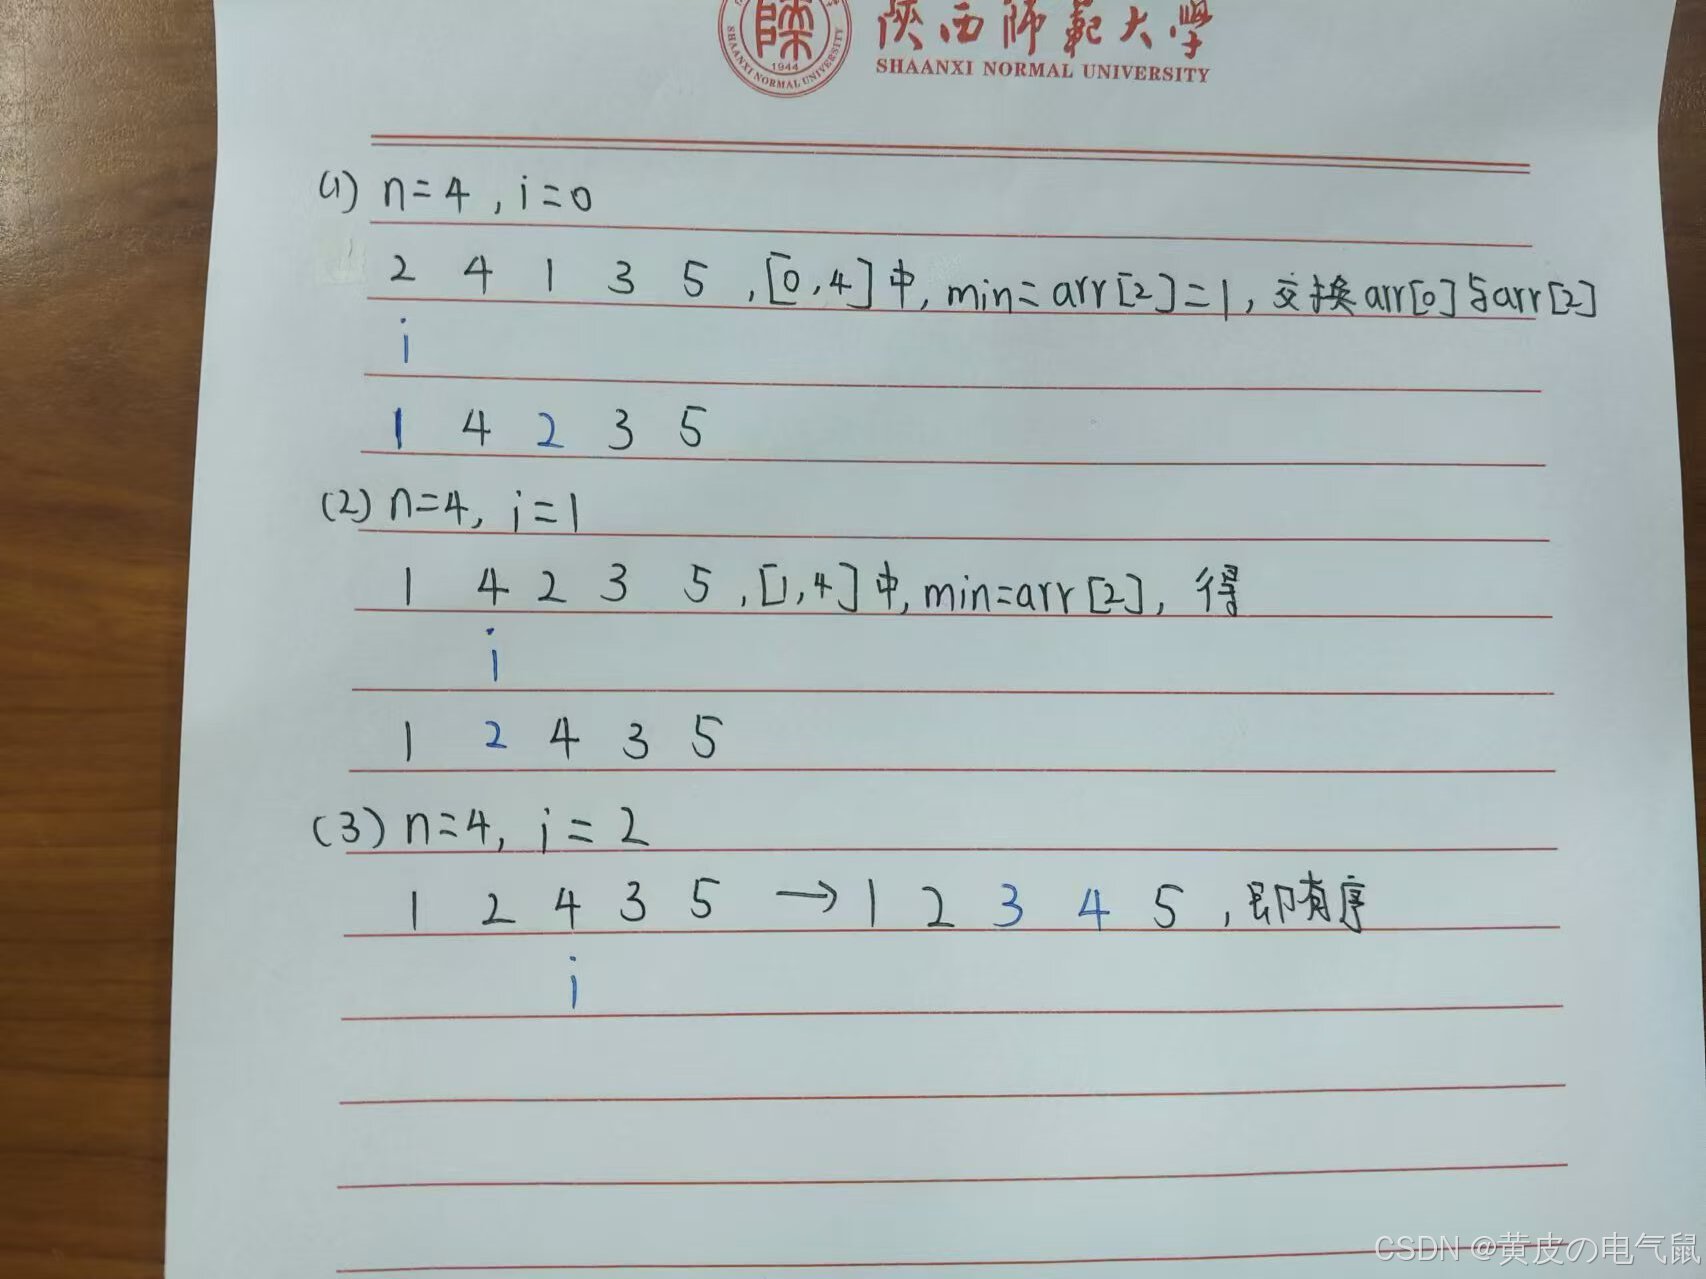 陕西师范大学
SHAANXI NORMAL UNIVERSITY
1944
SHAANXI NORMAL UNIVERSITY
(1) n=4, i=0
2 4 1 3 5, [0,4]中, min=arr[2]=1, 交换arr[0]与arr[2]
i
1 4 2 3 5
(2) n=4, i=1
1 4 2 3 5, [1,4]中, min=arr[2], 得
i
1 2 4 3 5
(3) n=4, i=2
1 2 4 3 5 → 1 2 3 4 5, 即有序
i
CSDN @黄皮の电气鼠